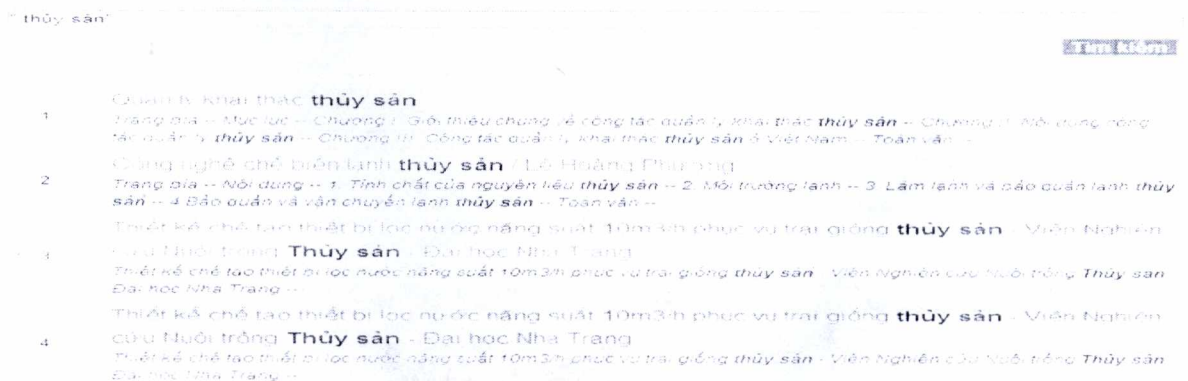 " thủy sản"
Tìm kiếm
Quản lý khai thác thủy sản
1
Trang bìa -- Mục lục -- Chương I. Giới thiệu chung về công tác quản lý, khai thác thủy sản -- Chương II. Nội dung công
tác quản lý thủy sản -- Chương III. Công tác quản lý, khai thác thủy sản ở Việt Nam -- Toàn văn --
Công nghệ chế biến lạnh thủy sản / Lê Hoàng Phương
2
Trang bìa -- Nội dung -- 1. Tính chất của nguyên liệu thủy sản -- 2. Môi trường lạnh -- 3. Làm lạnh và bảo quản lạnh thủy
sản -- 4.Bảo quản và vận chuyển lạnh thủy sản -- Toàn văn --
Thiết kế chế tạo thiết bị lọc nước năng suất 10m3/h phục vụ trại giống thủy sản - Viện Nghiên
cứu Nuôi trồng Thủy sản - Đại học Nha Trang
3
Thiết kế chế tạo thiết bị lọc nước năng suất 10m3/h phục vụ trại giống thủy sản - Viện Nghiên cứu Nuôi trồng Thủy sản
Đại học Nha Trang --
Thiết kế chế tạo thiết bị lọc nước năng suất 10m3/h phục vụ trại giống thủy sản - Viện Nghiên
cứu Nuôi trồng Thủy sản - Đại học Nha Trang
4
Thiết kế chế tạo thiết bị lọc nước năng suất 10m3/h phục vụ trại giống thủy sản - Viện Nghiên cứu Nuôi trồng Thủy sản
Đại học Nha Trang --